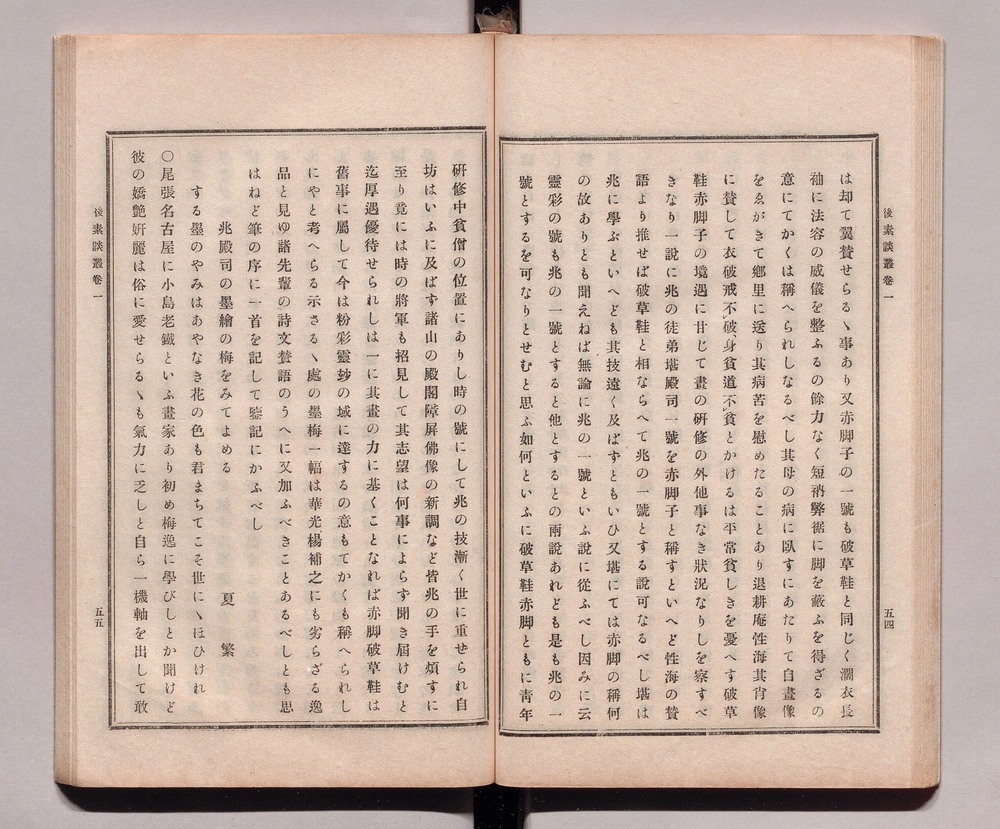 後素談叢卷一
五四
は却て翼賛せらるゝ事あり又赤脚子の一號も破草鞋と同じく瀾衣長
袖に法容の威儀を整ふるの餘力なく短褐弊裾に脚を蔽ふを得ざるの
意にてかくは稱へられしなるべし其母の病に臥すにあたりて自畫像
をゑがきて鄕里に送り其病苦を慰めたることあり退耕庵性海其肖像
に賛して衣破戒不破身貧道不貧とかけるは平常貧しきを憂へす破草
鞋赤脚子の境遇に甘じて畫の硏修の外他事なき狀況なりしを察すべ
きなり一說に兆の徒弟堪殿司一號を赤脚子と稱すといへど性海の賛
語より推せば破草鞋と相ならへて兆の一號とする說可なるべし堪は
兆に學ぶといへども其技遠く及ばずともいひ又堪にては赤脚の稱何
の故ありとも聞えねば無論に兆の一號といふ說に從ふべし因みに云
靈彩の號も兆の一號とすると他とするとの兩說あれども是も兆の一
號とするを可なりとせむと思ふ如何といふに破草鞋赤脚ともに靑年
硏修中貧僧の位置にありし時の號にして兆の技漸く世に重せられ自
坊はいふに及ばす諸山の殿閣障屏佛像の新調など皆兆の手を煩すに
至り竟には時の將軍も招見して其志望は何事によらす聞き届けむと
迄厚遇優待せられしは一に其畫の力に基くことなれば赤脚破草鞋は
舊事に屬して今は粉彩靈玅の域に達するの意もてかくも稱へられし
にやと考へらる示さるゝ處の墨梅一幅は華光楊補之にも劣らざる逸
品と見ゆ諸先輩の詩文賛語のうへに又加ふべきことあるべしとも思
はねど筆の序に一首を記して鑒記にかふべし
兆殿司の墨繪の梅をみてよめる　夏繁
する墨のやみはあやなき花の色も君まちてこそ世にゝほひけれ
〇尾張名古屋に小島老鐵といふ畫家あり初め梅逸に學びしとか聞けど
彼の嬌艶姸麗は俗に愛せらるゝも氣力に乏しと自ら一機軸を出して敢
後素談叢卷一
五五